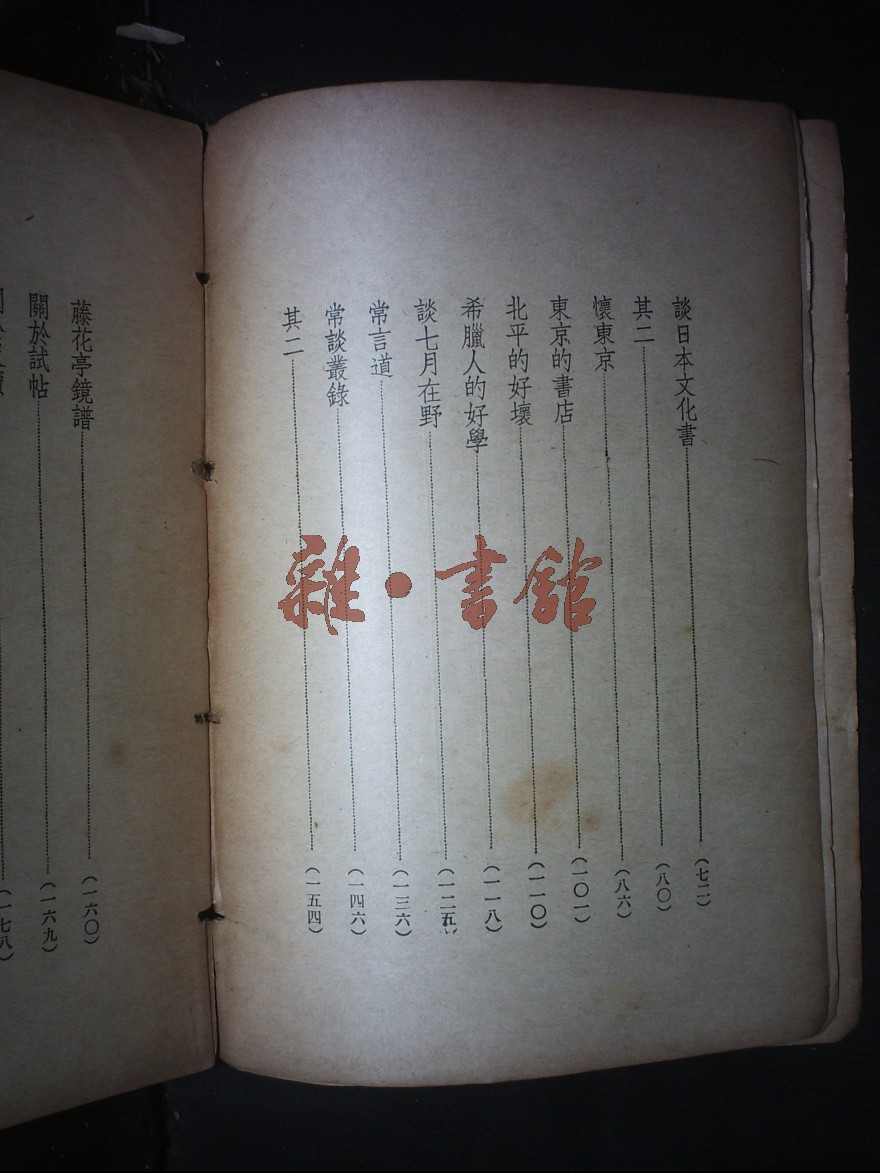 談日本文化書……(七二)
其二……(八〇)
懷東京……(八六)
東京的書店……(一〇一)
北平的好壞……(一一〇)
希臘人的好學……(一一八)
談七月在野……(一二五)
常言道……(一三六)
常談叢錄……(一四六)
其二……(一五四)
藤花亭鏡譜……(一六〇)
關於試帖……(一六九)
(一七八)
雜·書館